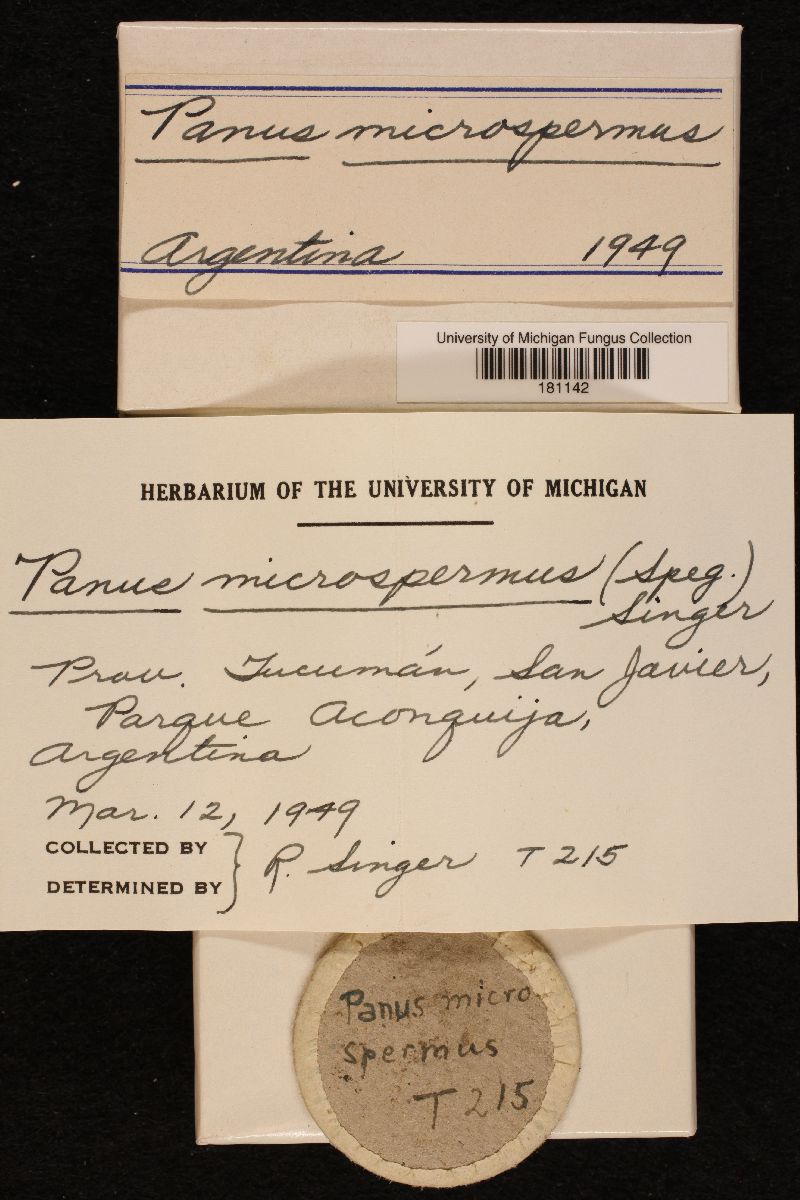 Panus microspermus
Argentina 1949
University of Michigan Fungus Collection
181142
HERBARIUM OF THE UNIVERSITY OF MICHIGAN
Panus microspermus (Speg.)
Singer
Prov. Tucumán, San Javier,
Parque Aconquija,
Argentina
Mar. 12, 1949
COLLECTED BY
DETERMINED BY } R. Singer T 215
Panus micro
spermus
T 215